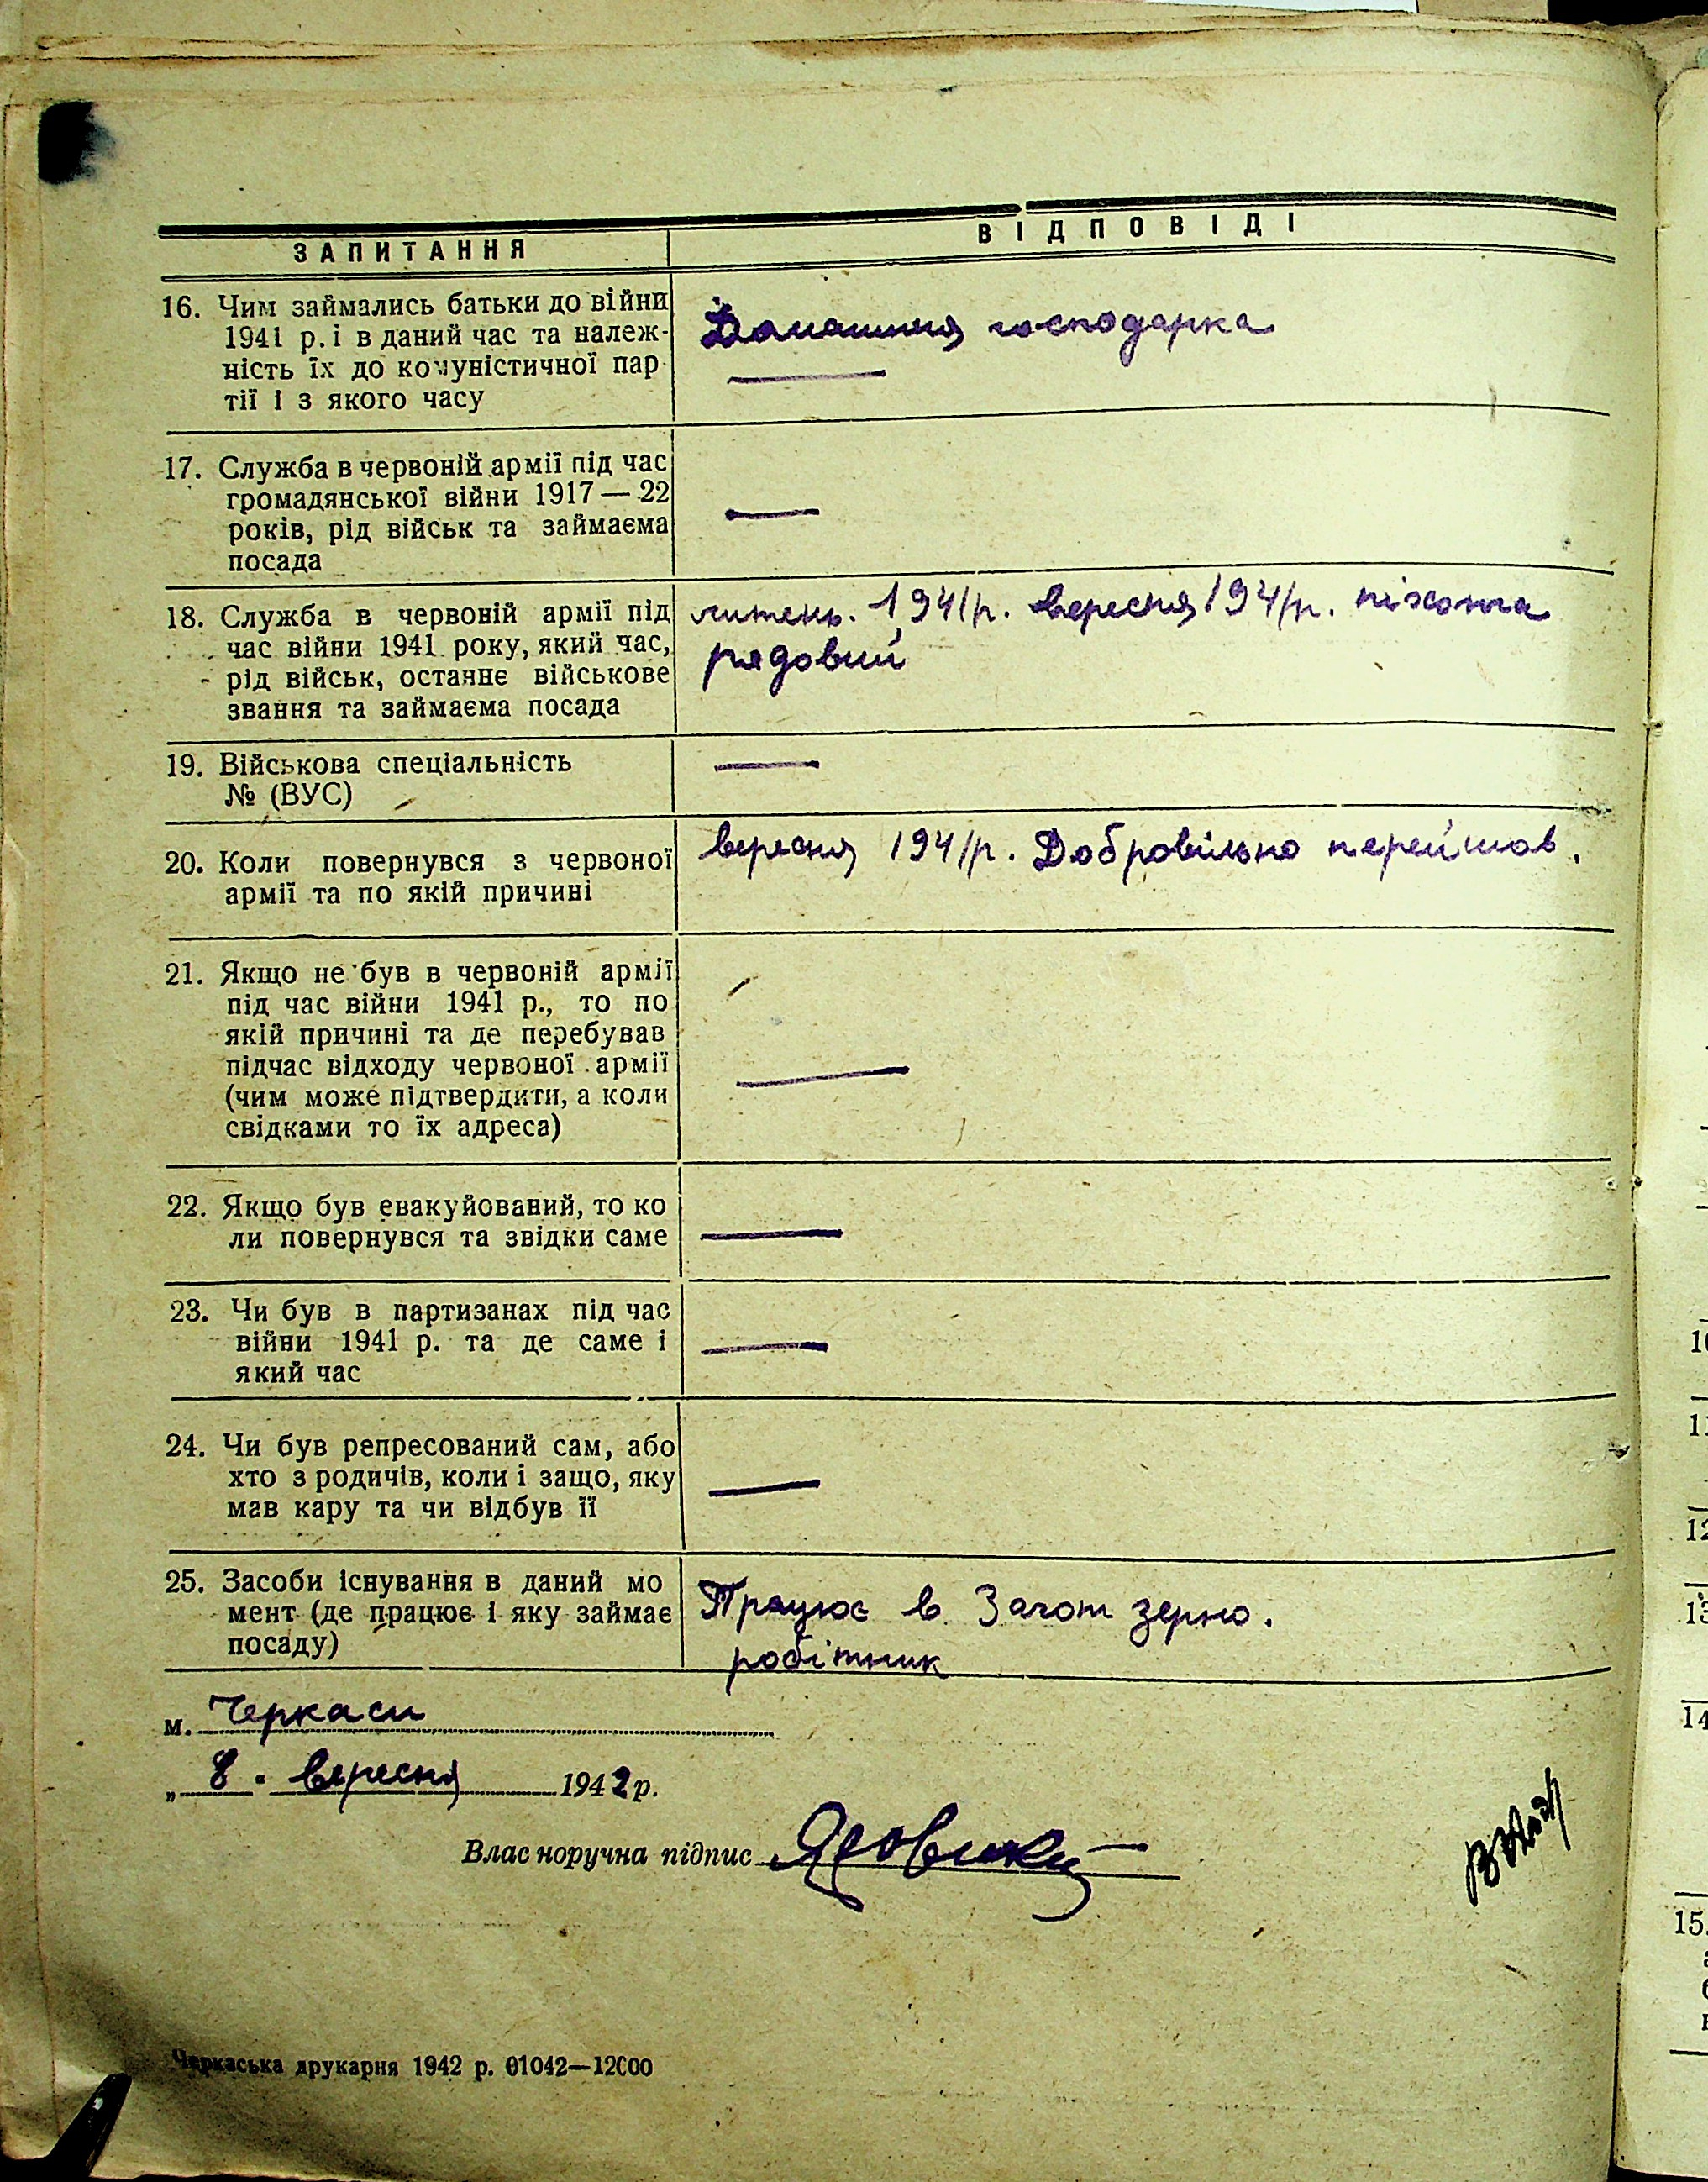 ЗАПИТАННЯ
ВІДПОВІДІ
16. Чим займались батьки до війни
1941 р. і в даний час та належ-
ність їх до комуністичної пар
тії і з якого часу
Домашня господарка
17. Служба в червоній армії під час
громадянської війни 1917—22
років, рід військ та займаєма
посада
18. Служба в червоній армії під
час війни 1941 року, який час,
рід військ, останнє військове
звання та займаєма посада
липень. 1941р. вересня 1941р. піхота
рядовий
19. Військова спеціальність
№ (ВУС)
20. Коли повернувся з червоної
армії та по якій причині
вересня 1941р. Добровільно перейшов.
21. Якщо не був в червоній армії
під час війни 1941 р., то по
якій причині та де перебував
підчас відходу червоної армії
(чим може підтвердити, а коли
свідками то їх адреса)
22. Якщо був евакуйований, то ко
ли повернувся та звідки саме
23. Чи був в партизанах під час
війни 1941 р. та де саме і
який час
24. Чи був репресований сам, або
хто з родичів, коли і защо, яку
мав кару та чи відбув її
25. Засоби існування в даний мо
мент (де працює і яку займає
посаду)
Працює в Загот зерно.
робітник
м. Черкаси
„ 8 . вересня 1942 р.
Власноручна підпис
Черкаська друкарня 1942 р. 01042—12000
11
12
13
14
15.